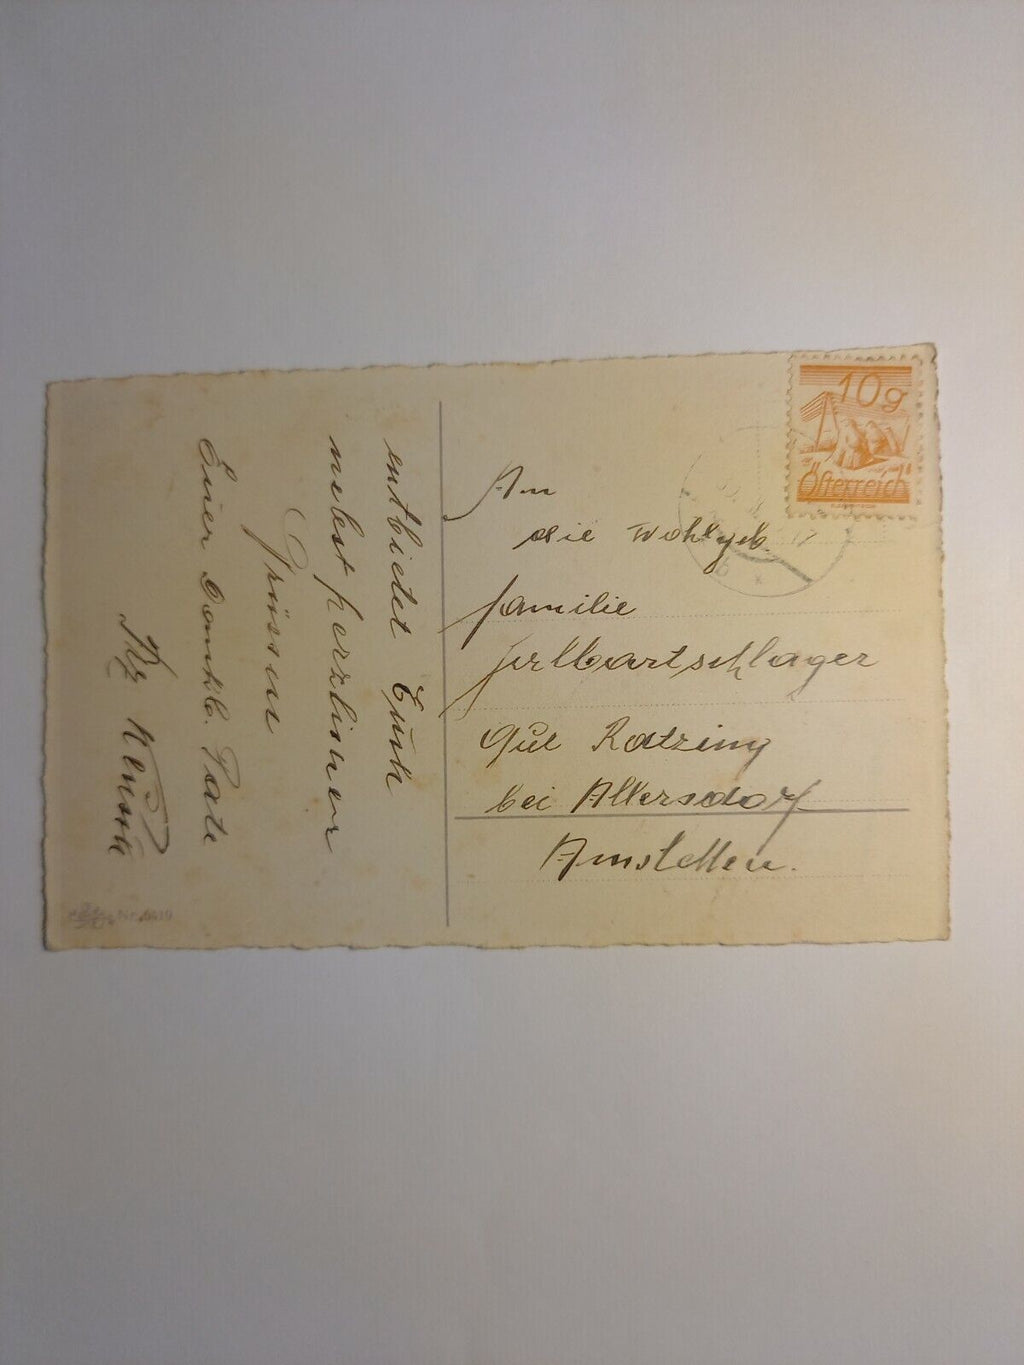 10g
Österreich
An
die Wohlgeb.
Familie
Gut Ratzing
bei Allersdorf
Amstetten.
entbietet Euch
nebst herzlichen
Grüssen
Euer dankb. Pate
Nr. 6419